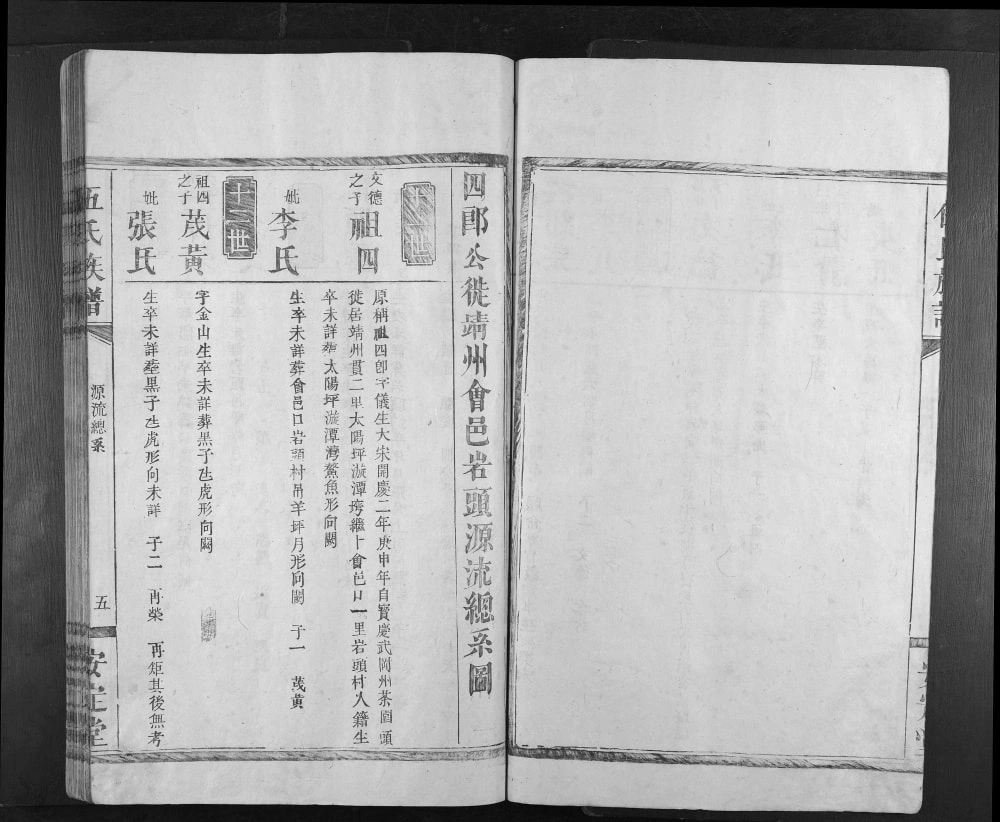 四郎公徙靖州會邑岩頭源流總系圖
十二世
文德之子 祖四
原稱祖四郎字儀生大宋開慶二年庚申年自寶慶武岡州茶園頭
徙居靖州貫二里太陽坪漩潭塆繼卜會邑口一里岩頭村入籍生
卒未詳葬太陽坪漩潭灣鰲魚形向闕
妣 李氏
生卒未詳葬會邑口岩頭村吊羊坪月形向闕 子一 茂黄
十三世
祖四之子 茂黄
字金山生卒未詳葬黑子坵虎形向闕
妣 張氏
生卒未詳葬黑子坵虎形向未詳 子二 再榮 再矩其後無考
伍氏族譜
源流總系
五
安定堂